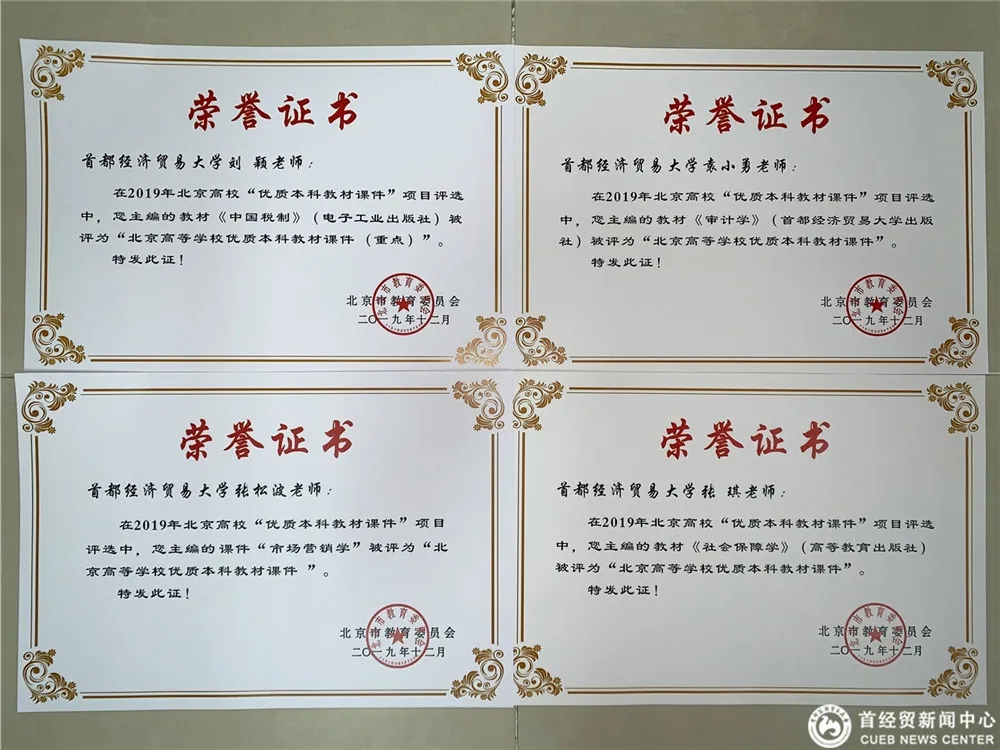 荣誉证书
首都经济贸易大学刘 颖老师：
在2019年北京高校“优质本科教材课件”项目评选
中，您主编的教材《中国税制》（电子工业出版社）被
评为“北京高等学校优质本科教材课件（重点）”。
特发此证！
北京市教育委员会
二〇一九年十二月
荣誉证书
首都经济贸易大学袁小勇老师：
在2019年北京高校“优质本科教材课件”项目评选
中，您主编的教材《审计学》（首都经济贸易大学出版
社）被评为“北京高等学校优质本科教材课件”。
特发此证！
北京市教育委员会
二〇一九年十二月
荣誉证书
首都经济贸易大学张松波老师：
在2019年北京高校“优质本科教材课件”项目
评选中，您主编的课件“市场营销学”被评为“北
京高等学校优质本科教材课件 ”。
特发此证！
北京市教育委员会
二〇一九年十二月
荣誉证书
首都经济贸易大学张 琪老师：
在2019年北京高校“优质本科教材课件”项目评选
中，您主编的教材《社会保障学》（高等教育出版社）
被评为“北京高等学校优质本科教材课件”。
特发此证！
北京市教育委员会
二〇一九年十二月
首经贸新闻中心
CUEB NEWS CENTER